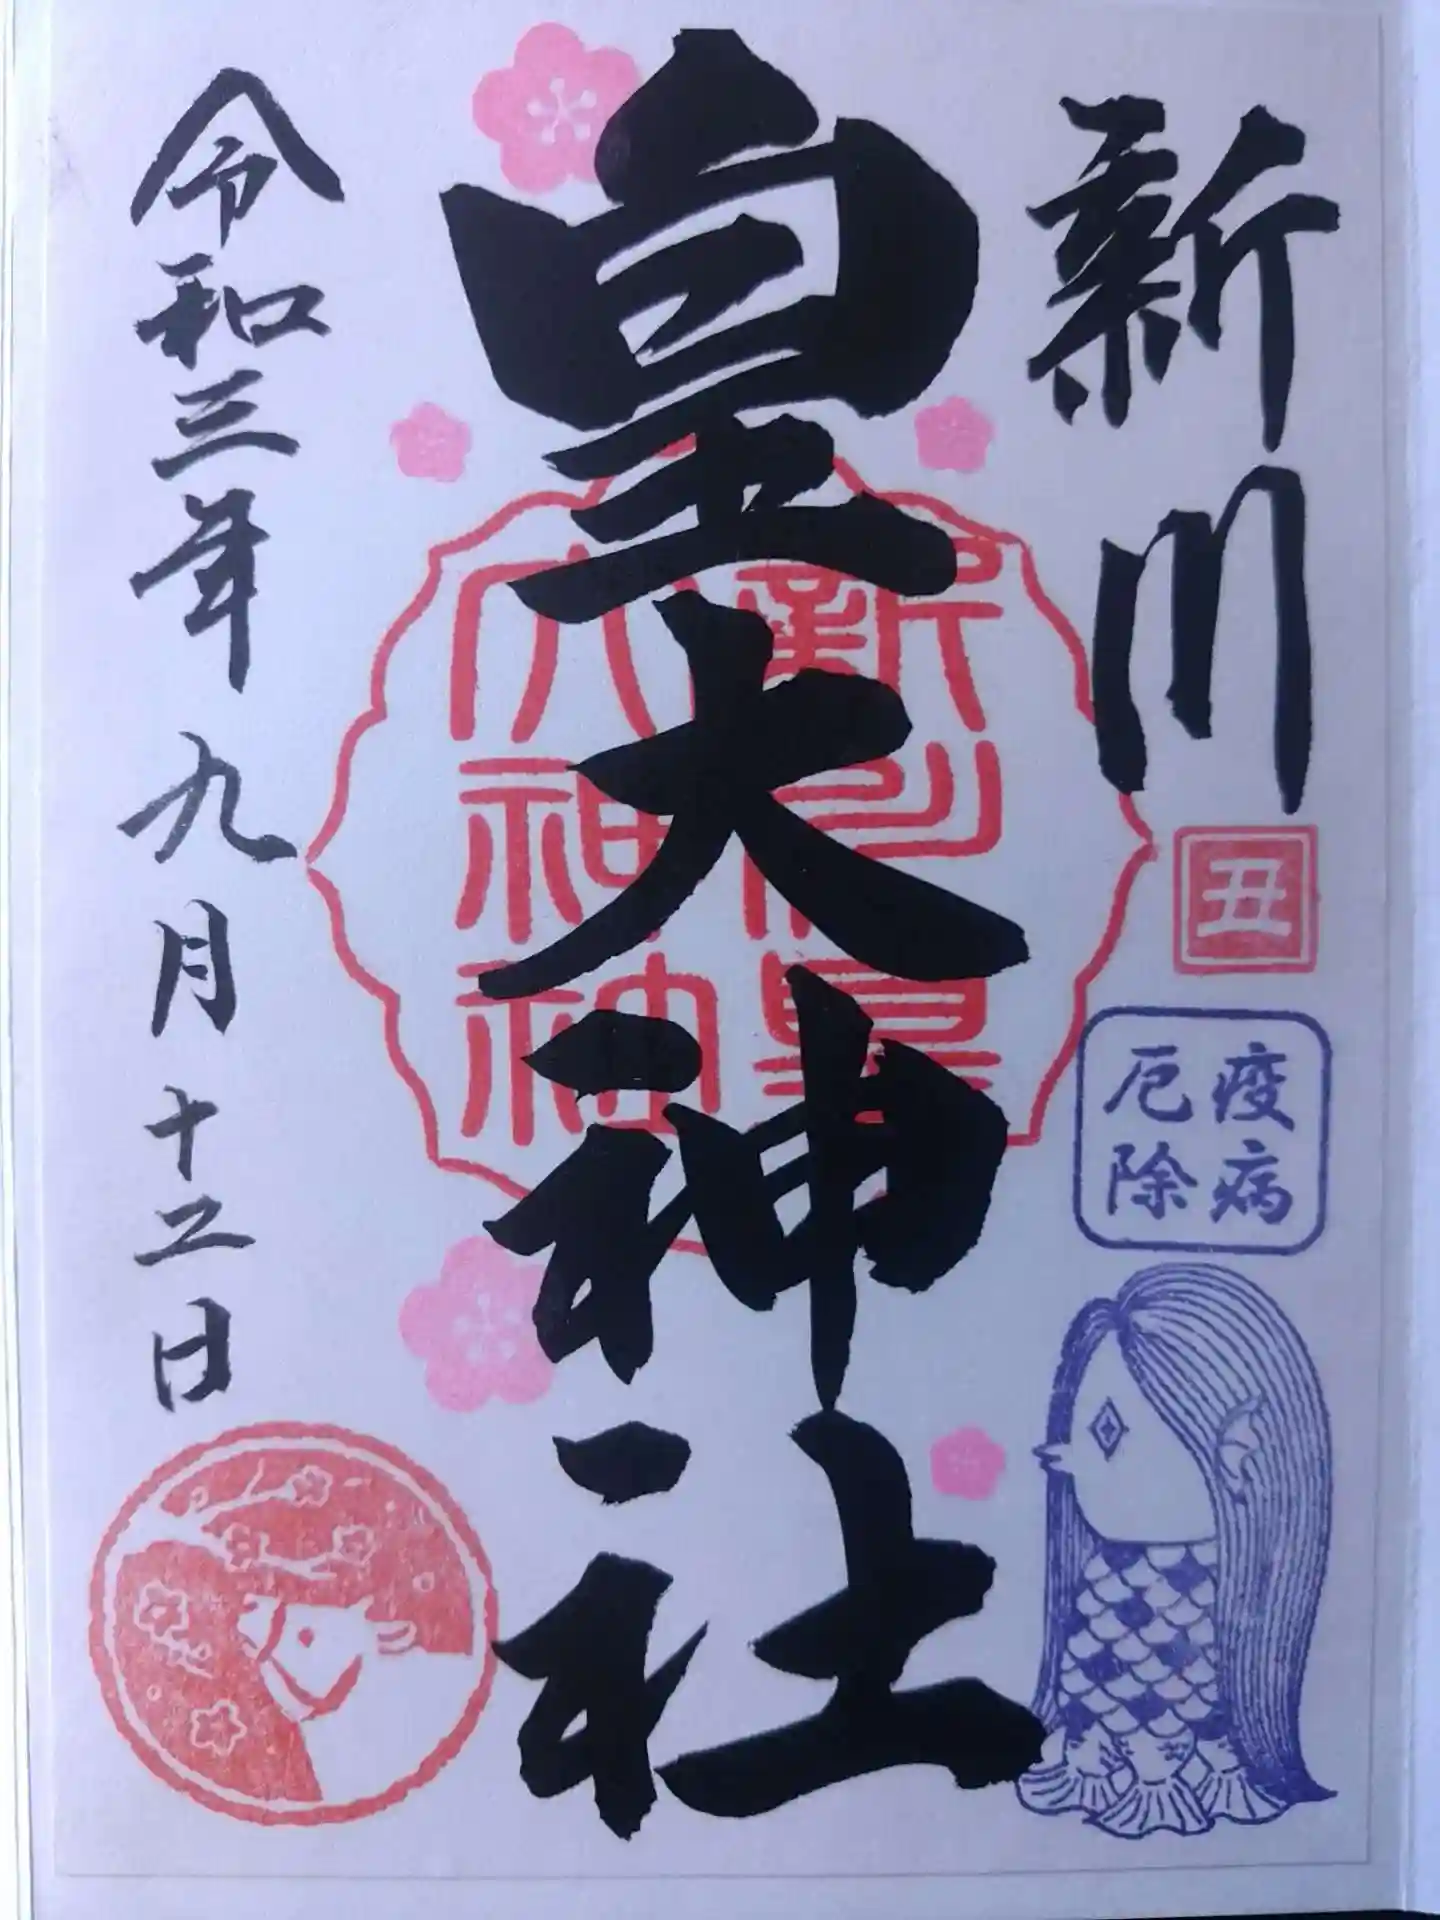 新川
丑
疫病
厄除
皇大神社
新川皇
大神社
令和三年九月十二日